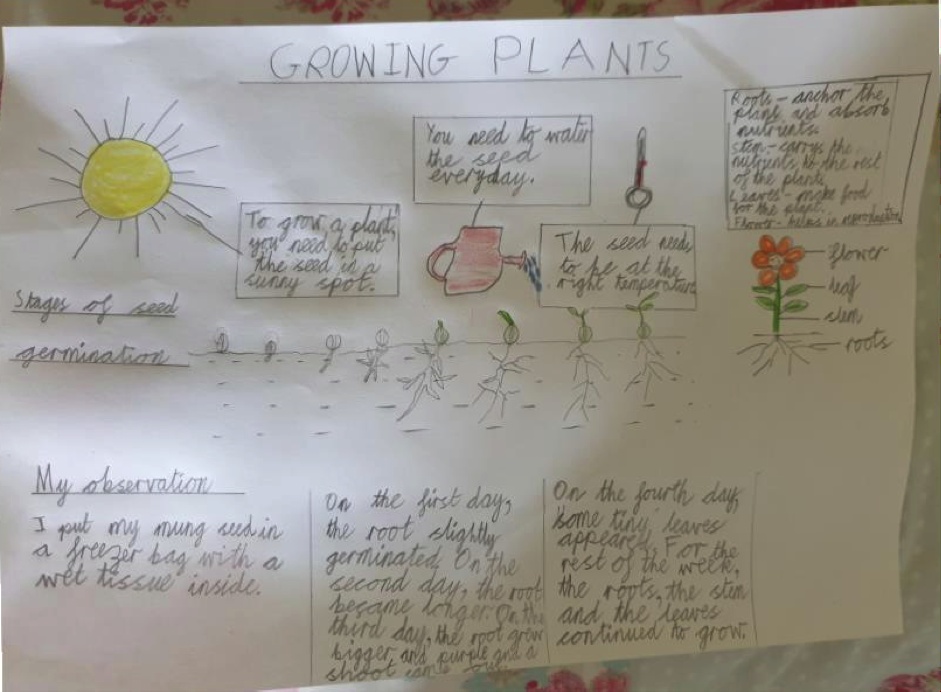 GROWING PLANTS
To grow a plant,
you need to put
the seed in a
sunny spot.
You need to water
the seed
everyday.
The seed needs
to be at the
right temperature
Roots - anchor the
plant and absorb
nutrients.
Stem - carrys the
nutrients to the rest
of the plants.
Leaves - make food
for the plant.
Flower - helps in reproduction
flower
leaf
stem
roots
Stages of seed
germination
My observation
I put my mung seed in
a freezer bag with a
wet tissue inside.
On the first day,
the root slightly
germinated. On the
second day, the root
became longer. On the
third day, the root grew
bigger and purple and a
shoot came
On the fourth day,
some tiny leaves
appeared. For the
rest of the week,
the roots, the stem
and the leaves
continued to grow.